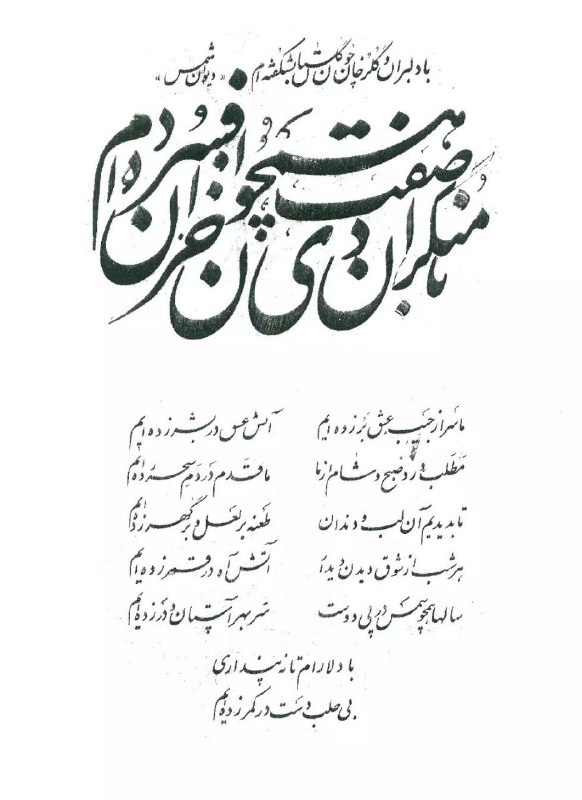 با دلبران و گلرخان چون گلستان بشکفته‌ام «دیوان شمس»
با منکران دی صفت همچون خزان افسرده‌ام
ما سر از جیب عشق بر زده ایم آتش عشق در بشر زده ایم
مطلب ورد صبح و شام از ما ما قدم در ره سحر زده ایم
تا بدیدیم آن لب و دندان طعنه بر لعل و بر گهر زده ایم
هر شب از شوق دیدن دیدار آتش آه در قمر زده ایم
سالها همچو شمس در پی دوست سر بهر آستان و در زده ایم
با دلارام تا نه پنداری
بی طلب دست در کمر زده ایم